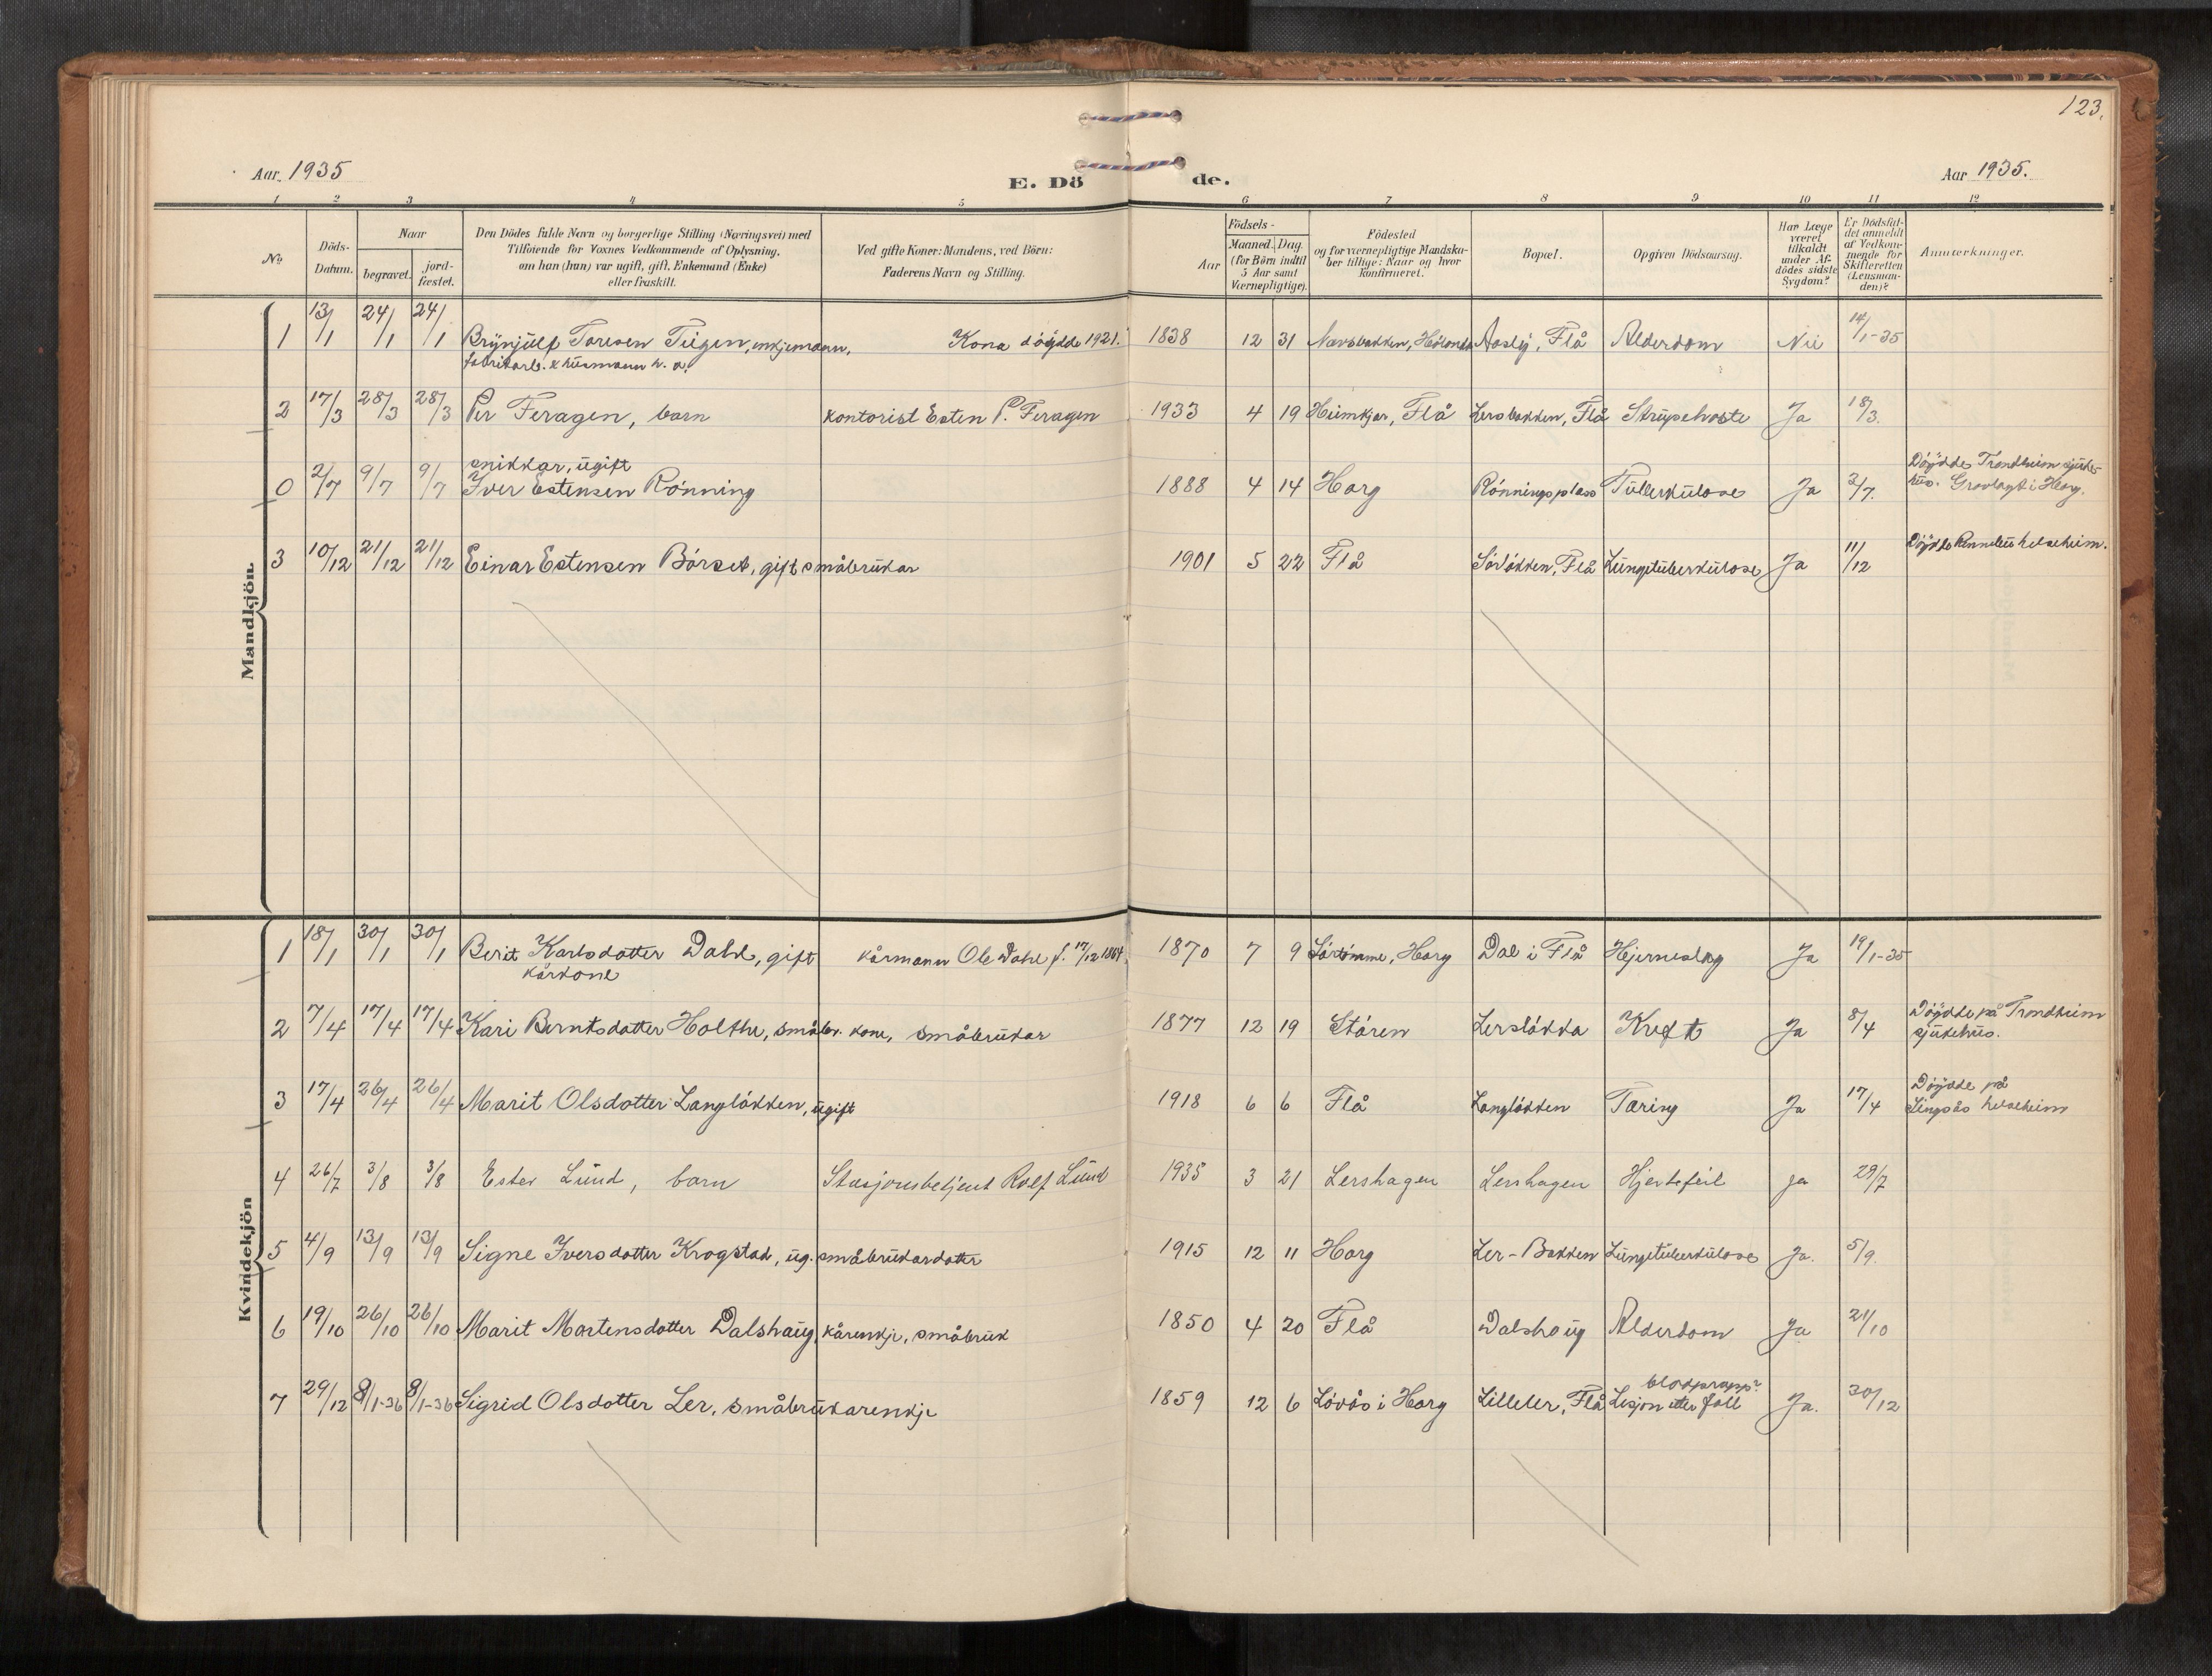 123.
Aar 1935
E. Dö de.
Aar 1935.
1 2 3 4 5 6 7 8 9 10 11 12
No
Döds-Datum.
Naar
begravet.
jord-fæstet.
Den Dödes fulde Navn og borgerlige Stilling (Næringsvei) med
Tilföiende for Voxnes Vedkommende af Oplysning,
om han (hun) var ugift, gift, Enkemand (Enke)
eller fraskilt.
Ved gifte Koner: Mandens, ved Börn:
Faderens Navn og Stilling.
Aar
Födsels-
Maaned. Dag.
(for Börn indtil
5 Aar samt
Værnepligtige).
Födested
og for værnepligtige Mandska-
ber tillige: Naar og hvor
konfirmeret.
Bopæl.
Opgiven Dödsaarsag.
Har Læge
været
tilkaldt
under Af-
dödes sidste
Sygdom?
Er Dödsfal-
det anmeldt
af Vedkom-
mende for
Skifteretten
(Lensman-
den)?
Anmærkninger.
Mandkjön
1 13/1 24/1 24/1 Brynjulf Toresen Teigen, enkjemann, Kona döydde 1921. 1838 12 31 Aasly, Flå Alderdom Nei 14/1-35
fabrikarb. & husmann h. a.
2 17/3 28/3 28/3 Per Feragen, barn kontorist Esten P. Feragen 1933 4 19 Heimkjær, Flå Lersbakken, Flå Strupehoste Ja 18/3.
snikkar, ugift
0 2/7 9/7 9/7 Iver Estensen Rönning 1888 4 14 Horg Rönningsplass Tuberkulose Ja 3/7. Döydde Trondheim sjuke-
hus. Gravlagt i Horg.
3 10/12 21/12 21/12 Einar Estensen Börset, gift småbrukar 1901 5 22 Flå Sörlökken, Flå Lungetuberkulose Ja 11/12 Döydde Rennebu helseheim.
Kvindekjön
1 18/1 30/1 30/1 Berit Karlsdotter Dahl, gift kårmann Ole Dahl f. 17/12 1864. 1870 7 9 Sörtömme, Horg Dal i Flå Hjerneslag Ja 19/1-35
kårkone
2 7/4 17/4 17/4 Kari Berntsdotter Holthe, småbr. kone, småbrukar 1877 12 19 Stören Lerslökka Kreft Ja 8/4 Döydde på Trondheim
sjukehus.
3 17/4 26/4 26/4 Marit Olsdotter Langlökken, ugift 1918 6 6 Flå Langlökken Tæring Ja 17/4 Döydde på
Singsås helseheim
4 26/7 3/8 3/8 Ester Lund, barn Stasjonsbetjent Rolf Lund 1935 3 21 Lershagen Lershagen Hjertefeil ja 29/7
5 4/9 13/9 13/9 Signe Iversdotter Krogstad, ug. småbrukardotter 1915 12 11 Horg Ler-Bakken Lungetuberkulose Ja. 5/9.
6 19/10 26/10 26/10 Marit Mortensdotter Dalshaug, kårenkje, småbruk 1850 4 20 Flå Dalshaug Alderdom Ja 21/10
blodpropp?
7 29/12 8/1-36 8/1-36 Sigrid Olsdotter Ler, småbrukarenkje 1859 12 6 Lövås i Horg Lilleler, Flå Lesjon etter fall Ja. 30/12